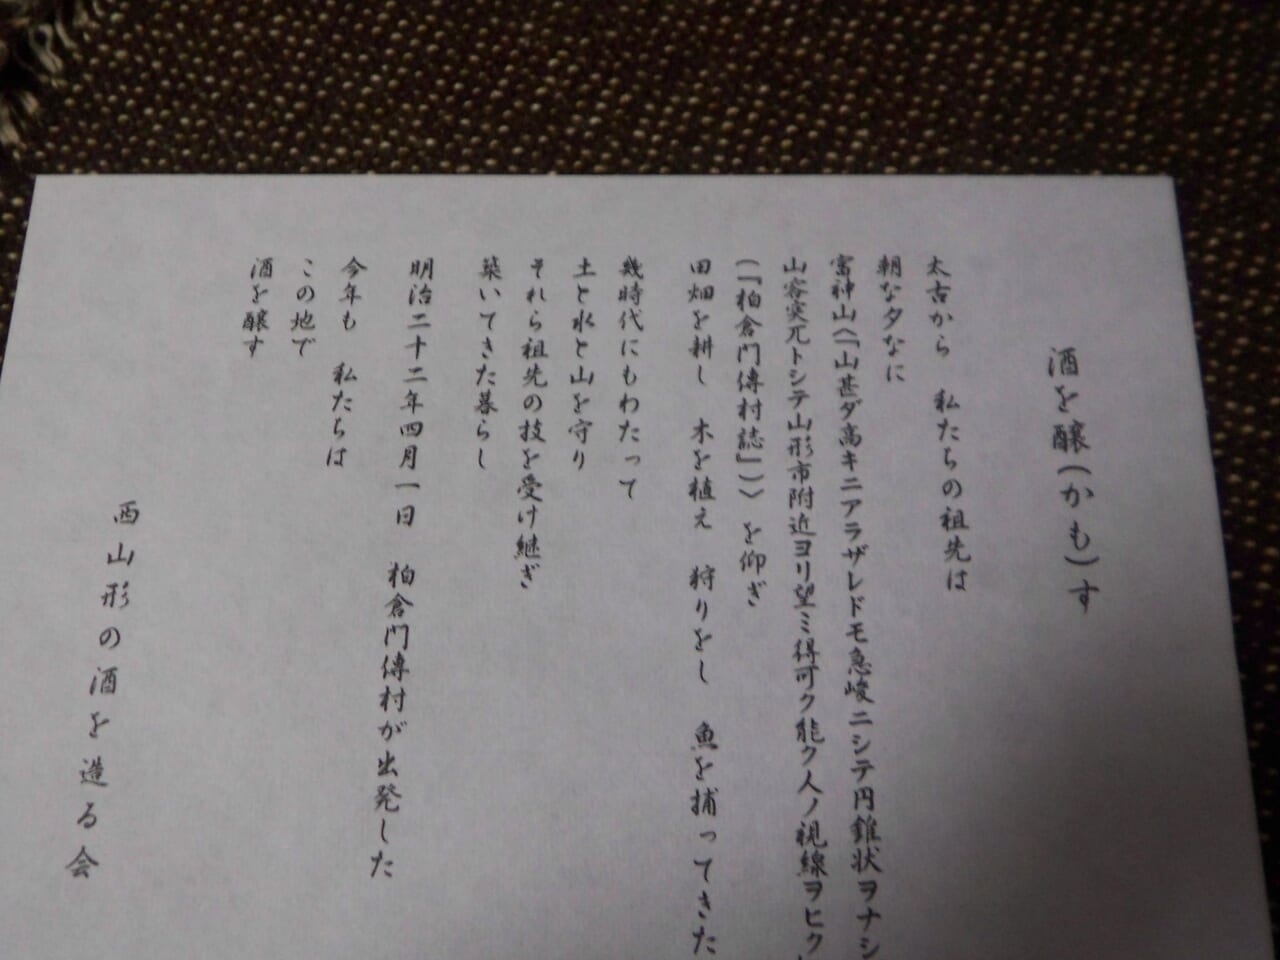 酒を醸(かも)す
太古から　私たちの祖先は
朝な夕なに
富神山(「山甚ダ高キニアラザレドモ急峻ニシテ円錐状ヲナシ
山容突兀トシテ山形市附近ヨリ望ミ得可ク能ク人ノ視線ヲヒク
(『柏倉門傳村誌』))を仰ぎ
田畑を耕し　木を植え　狩りをし　魚を捕ってきた
幾時代にもわたって
土と水と山を守り
それら祖先の技を受け継ぎ
築いてきた暮らし
明治二十二年四月一日　柏倉門傳村が出発した
今年も　私たちは
この地で
酒を醸す
西山形の酒を造る会